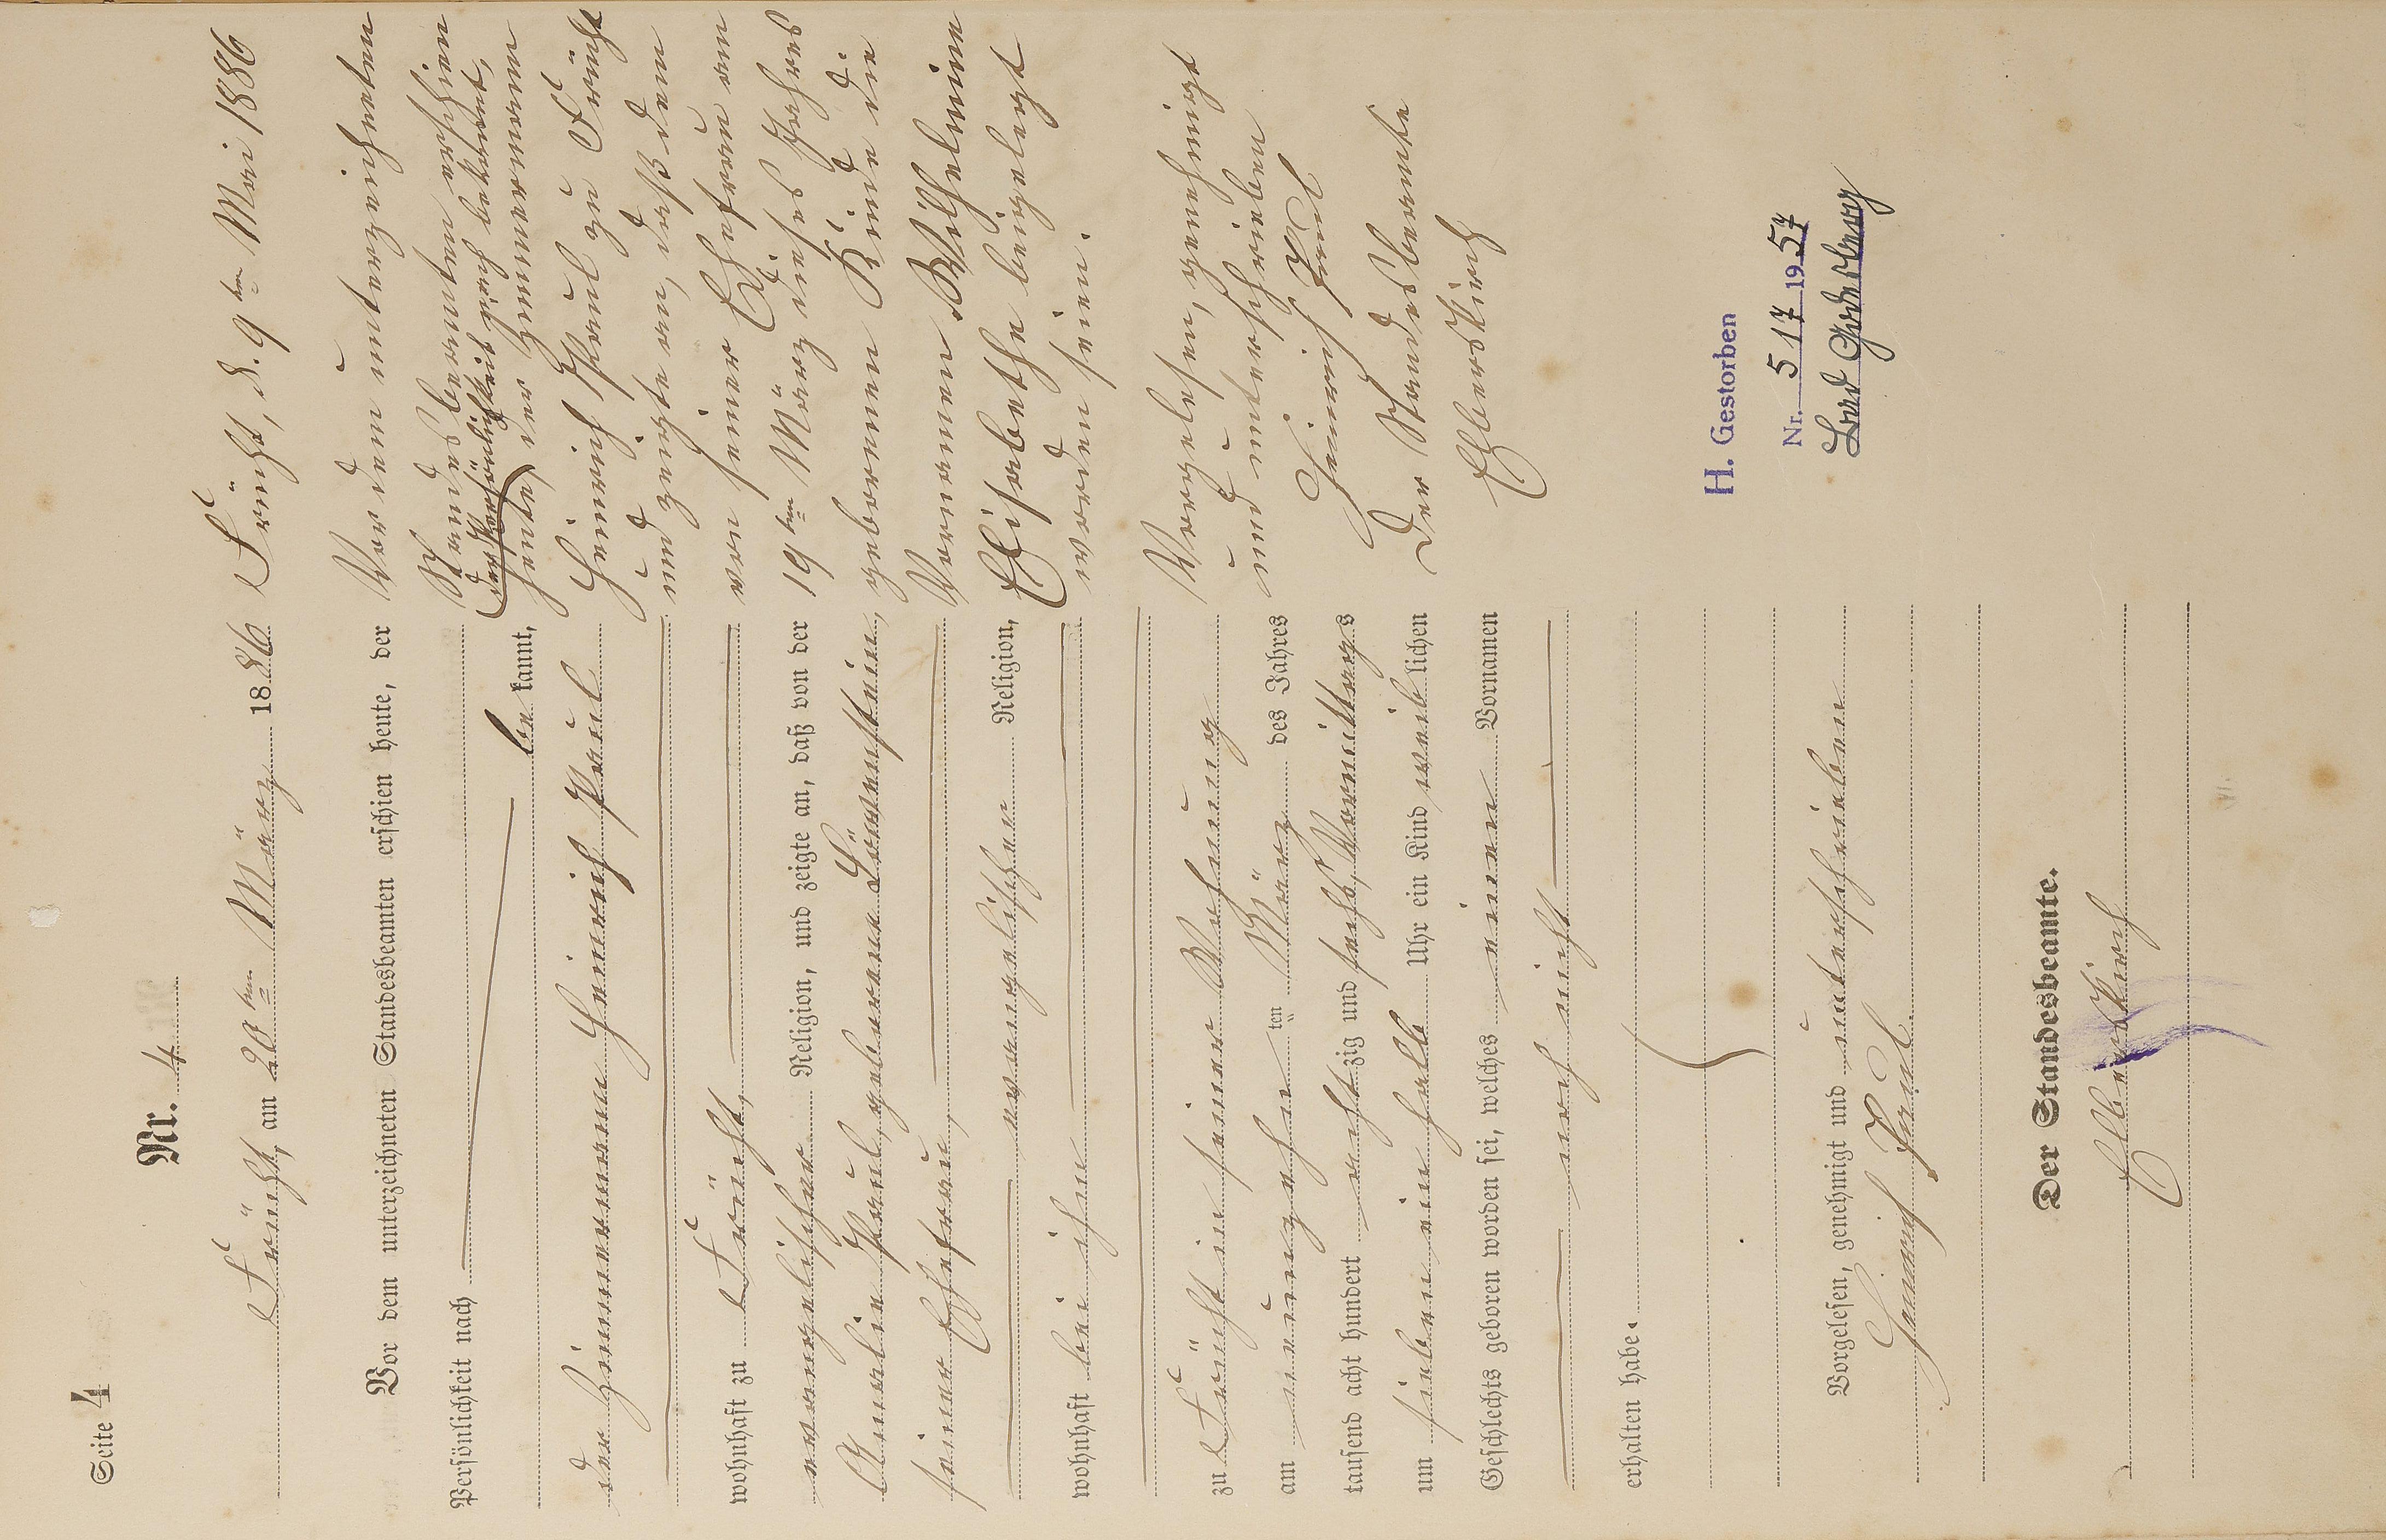 Seite 4
Nr. 4
Frücht, am 20ten März 1886
Vor dem unterzeichneten Standesbeamten erschien heute, der
Persönlichkeit nach
bekannt,
der Zimmermann Heinrich Paul
wohnhaft zu Frücht,
evangelischer Religion, und zeigte an, daß von der
Amalie Paul, geborene Löwenstein,
seiner Ehefrau,
evangelischer Religion,
wohnhaft bei ihm
zu Frücht in seiner Wohnung
am neunzehn ten März des Jahres
tausend acht hundert achtzig und sechs, Vormittags
um sieben ein halb Uhr ein Kind weiblichen
Geschlechts geboren worden sei, welches einen Vornamen
noch nicht
erhalten habe.
Vorgelesen, genehmigt und unterschrieben
Heinrich Paul.
Der Standesbeamte.
Elberskirch
Frücht, d. 9ten Mai 1886
Vor dem unterzeichneten
Standesbeamten erschien
der Persönlichkeit nach bekannt,
heute, der Zimmermann
Heinrich Paul zu Frücht
und zeigte an, daß dem
von seiner Ehefrau am
19ten März dieses Jahres
geborenen Kinde die
Vornamen Wilhelmine
Elisabethe beigelegt
worden seien.
Vorgelesen, genehmigt
und unterschrieben
Heinrich Paul
Der Standesbeamte
Elberskirch
H. Gestorben
Nr. 517 1957
Bad Godesberg